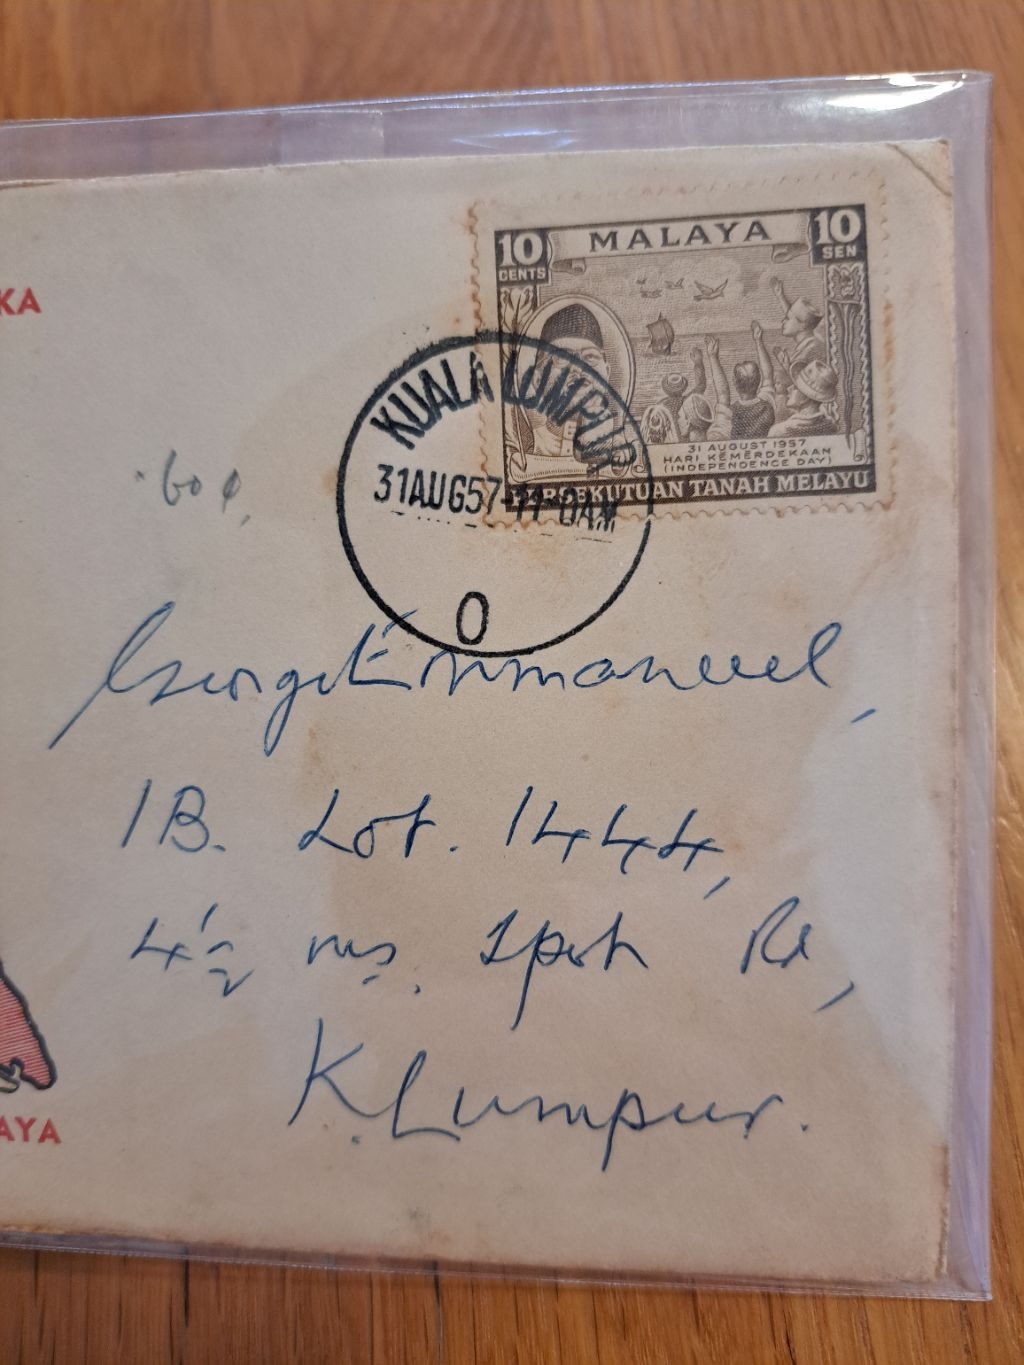 KA
10 CENTS
MALAYA
10 SEN
31 AUGUST 1957
HARI KEMERDEKAAN
(INDEPENDENCE DAY)
PERSEKUTUAN TANAH MELAYU
KUALA LUMPUR
31AUG57-11-0AM
0
60¢
George Emmanuel,
1B. Lot. 1444,
4½ ms. Ipoh Rd,
K. Lumpur.
AYA